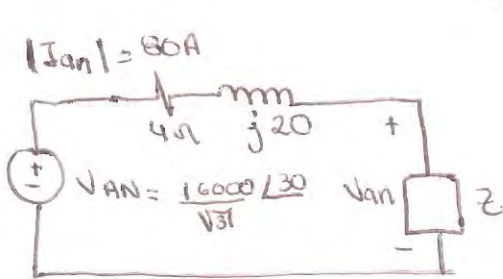 |Ian| = 80A
4Ω j20
+
+
-
VAN = 16000 ∠30
√3
Van
Z
-